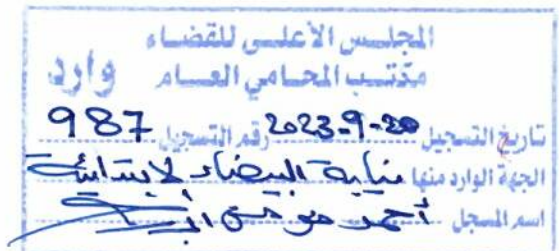 المجلس الأعلى للقضاء
مكتب المحامي العام وارد
تاريخ التسجيل 20-9-2023 رقم التسجيل 987
الجهة الوارد منها نيابة البيضاء لابتدائية
اسم المسجل أحمد